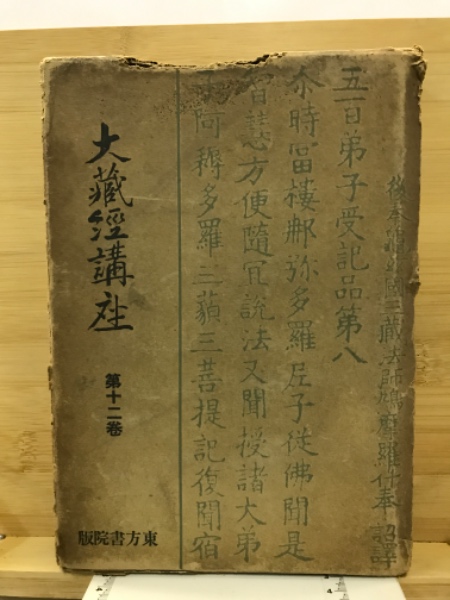 後秦龜茲國三藏法師鳩摩羅什奉 詔譯
五百弟子受記品第八
尒時冨樓那弥多羅尼子從佛聞是
智慧方便隨冝說法又聞授諸大弟
子阿耨多羅三藐三菩提記復聞宿
大藏經講座
第十二卷
東方書院版